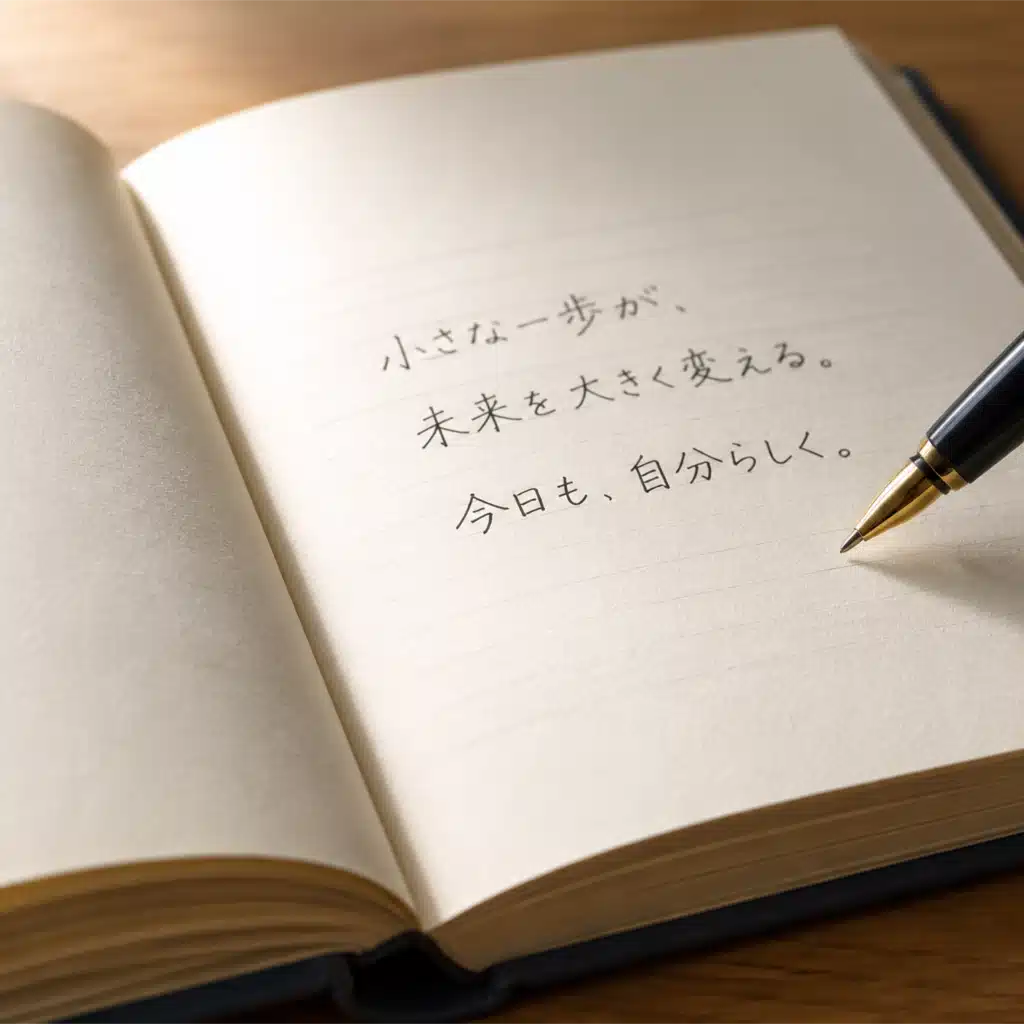 小さな一歩が、
未来を大きく変える。
今日も、自分らしく。